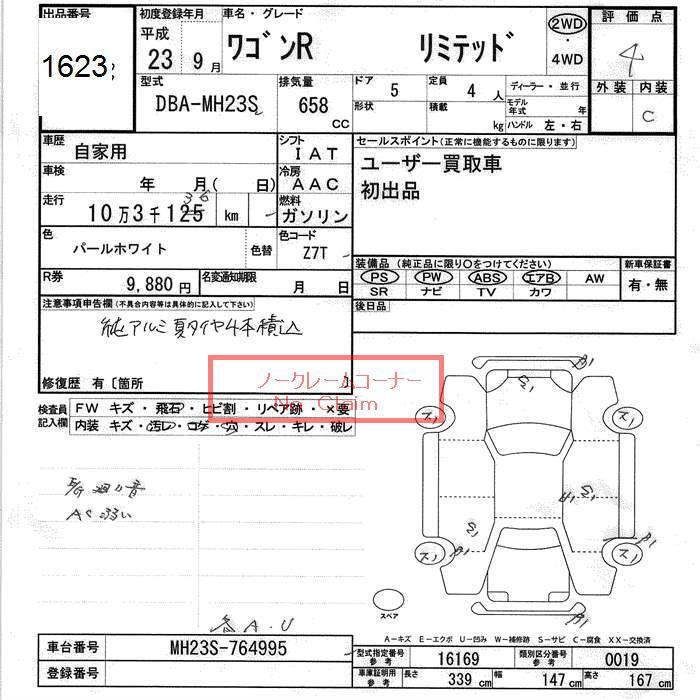 出品番号
1623
初度登録年月
平成
23 年 9 月
車名・グレード
ワゴンR リミテッド
2WD
・
4WD
評価点
4
外装 内装
C
型式
DBA-MH23S
排気量
658 CC
ドア 5
形状
定員 4 人
積載 kg
ディーラー・並行
モデル年式 年
ハンドル 左・右
車歴
自家用
シフト
IAT
車検
年 月( 日)
冷房
AAC
走行
10万3千125 km
36
燃料
ガソリン
色
パールホワイト
色替
色コード
Z7T
R券
9,880円
名変通知期限
月 日
セールスポイント(正常に機能するものに限ります)
ユーザー買取車
初出品
装備品(純正品に限り○をつけてください)
PS PW ABS エアB AW
SR ナビ TV カワ
新車保証書
有・無
後日品
注意事項申告欄(不具合内容等は具体的に記入して下さい)
純アルミ夏タイヤ4本積込
修復歴 有〔箇所 〕
ノークレームコーナー
No Claim
検査員
記入欄
FW キズ・飛石・ヒビ割・リペア跡・×要
内装 キズ・汚レ・コゲ・穴・スレ・キレ・破レ
AC弱い
A.U
スペア
A-キズ E-エクボ U-凹み W-補修跡 S-サビ C-腐食 XX-交換済
車台番号
MH23S-764995
登録番号
型式指定番号
参考
16169
類別区分番号
参考
0019
車庫証明用
参考
長さ 339 cm
幅 147 cm
高さ 167 cm